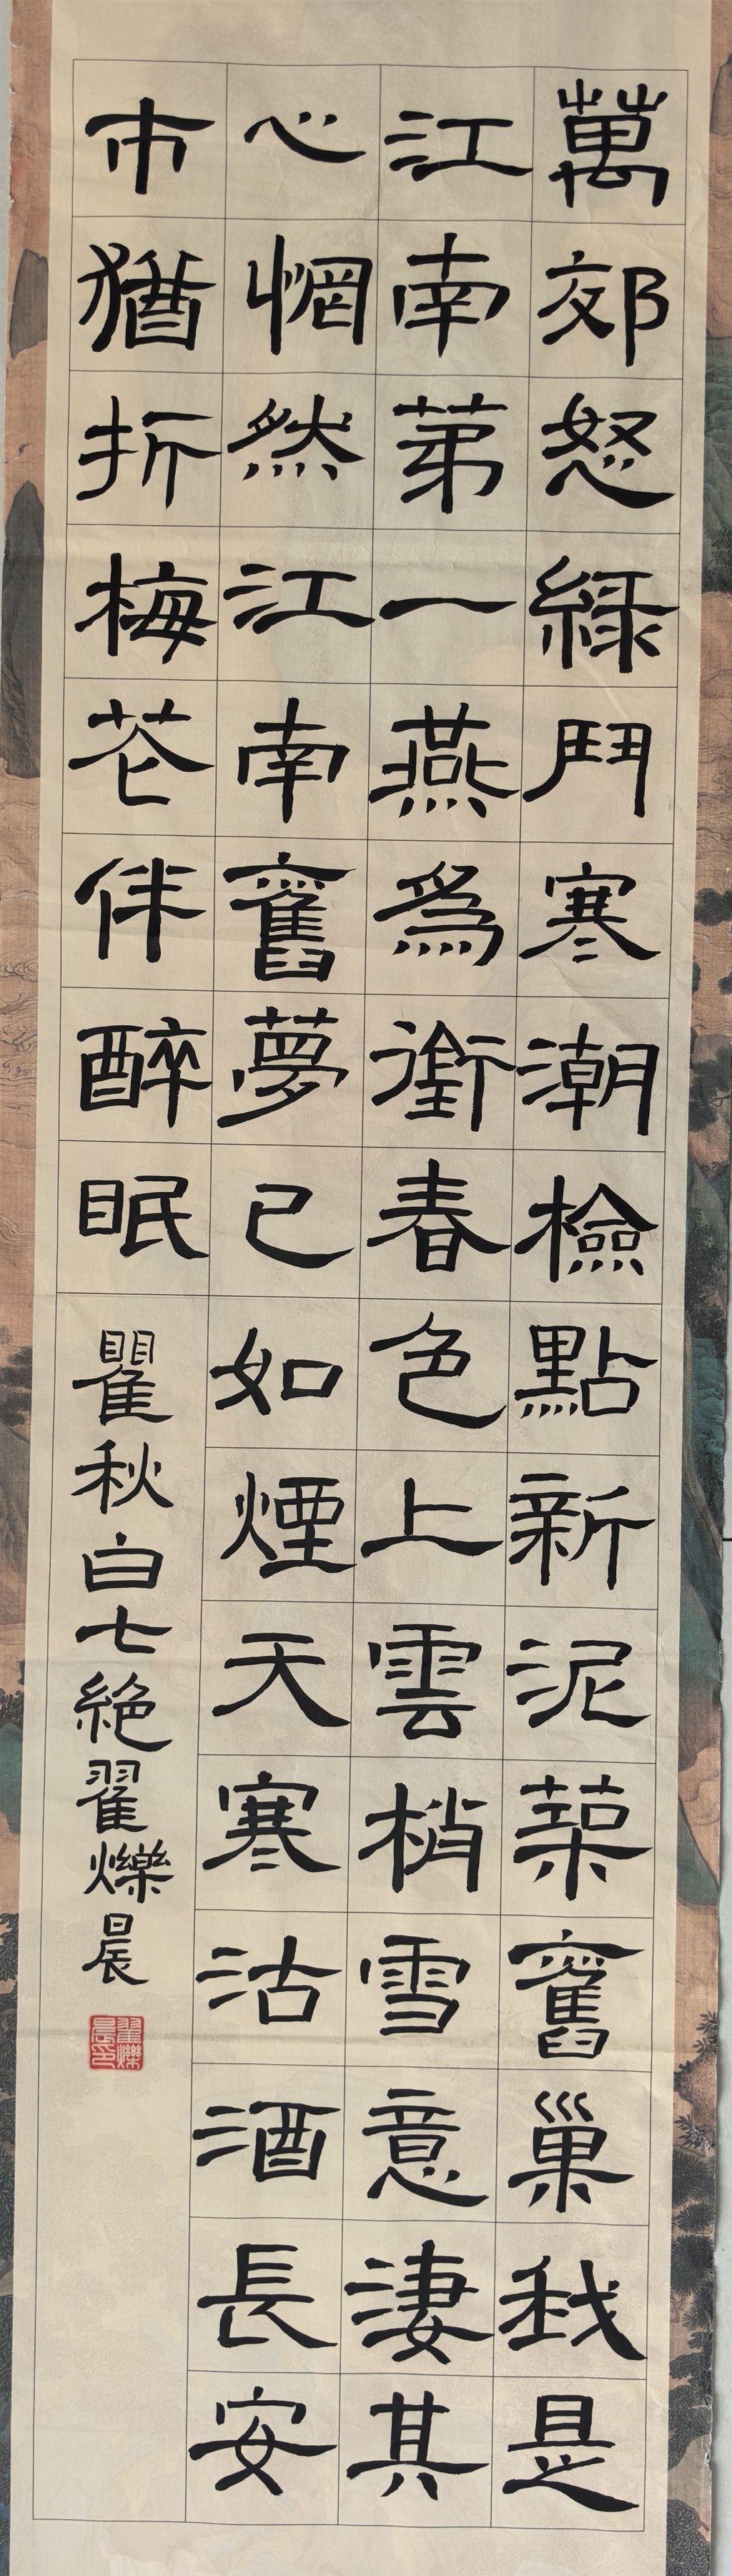 萬郊怒綠鬥寒潮檢點新泥築舊巢我是
江南第一燕為銜春色上雲梢雪意淒其
心惘然江南舊夢已如煙天寒沽酒長安
市猶折梅花伴醉眠
瞿秋白七絕翟爍晨
翟爍晨印